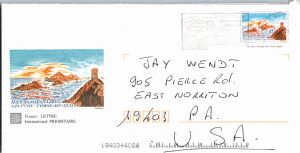 JAY WENDT
905 PIERCE Rd.
EAST NORRITON
19403 P.A.
U.S.A.
ILES SANGUINAIRES
AJACCIO - CORSE-DU-SUD
France : LETTRE
International PRIORITAIRE
19403+4026